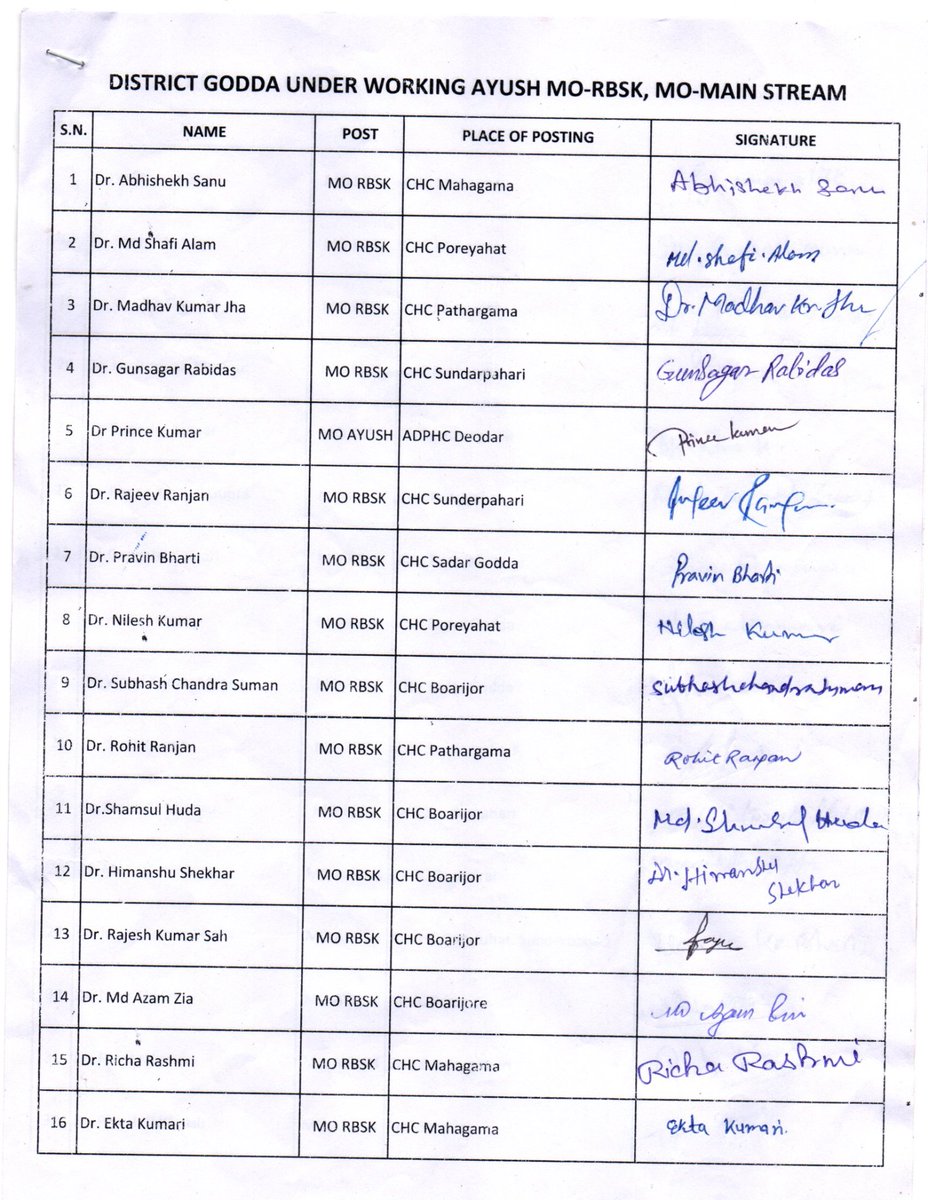 DISTRICT GODDA UNDER WORKING AYUSH MO-RBSK, MO-MAIN STREAM
S.N. NAME POST PLACE OF POSTING SIGNATURE
1 Dr. Abhishekh Sanu MO RBSK CHC Mahagama Abhishekh Sanu
2 Dr. Md Shafi Alam MO RBSK CHC Poreyahat Md. Shafi. Alam
3 Dr. Madhav Kumar Jha MO RBSK CHC Pathargama Dr. Madhav Kr. Jha
4 Dr. Gunsagar Rabidas MO RBSK CHC Sundarpahari Gunsagar Rabidas
5 Dr Prince Kumar MO AYUSH ADPHC Deodar Prince Kumar
6 Dr. Rajeev Ranjan MO RBSK CHC Sunderpahari
7 Dr. Pravin Bharti MO RBSK CHC Sadar Godda Pravin Bharti
8 Dr. Nilesh Kumar MO RBSK CHC Poreyahat Nilesh Kumar
9 Dr. Subhash Chandra Suman MO RBSK CHC Boarijor Subhashchandrasuman
10 Dr. Rohit Ranjan MO RBSK CHC Pathargama Rohit Ranjan
11 Dr.Shamsul Huda MO RBSK CHC Boarijor Md. Shamsul Huda
12 Dr. Himanshu Shekhar MO RBSK CHC Boarijor Dr. Himanshu
Shekhar
13 Dr. Rajesh Kumar Sah MO RBSK CHC Boarijor
14 Dr. Md Azam Zia MO RBSK CHC Boarijore
15 Dr. Richa Rashmi MO RBSK CHC Mahagama Richa Rashmi
16 Dr. Ekta Kumari MO RBSK CHC Mahagama Ekta Kumari.